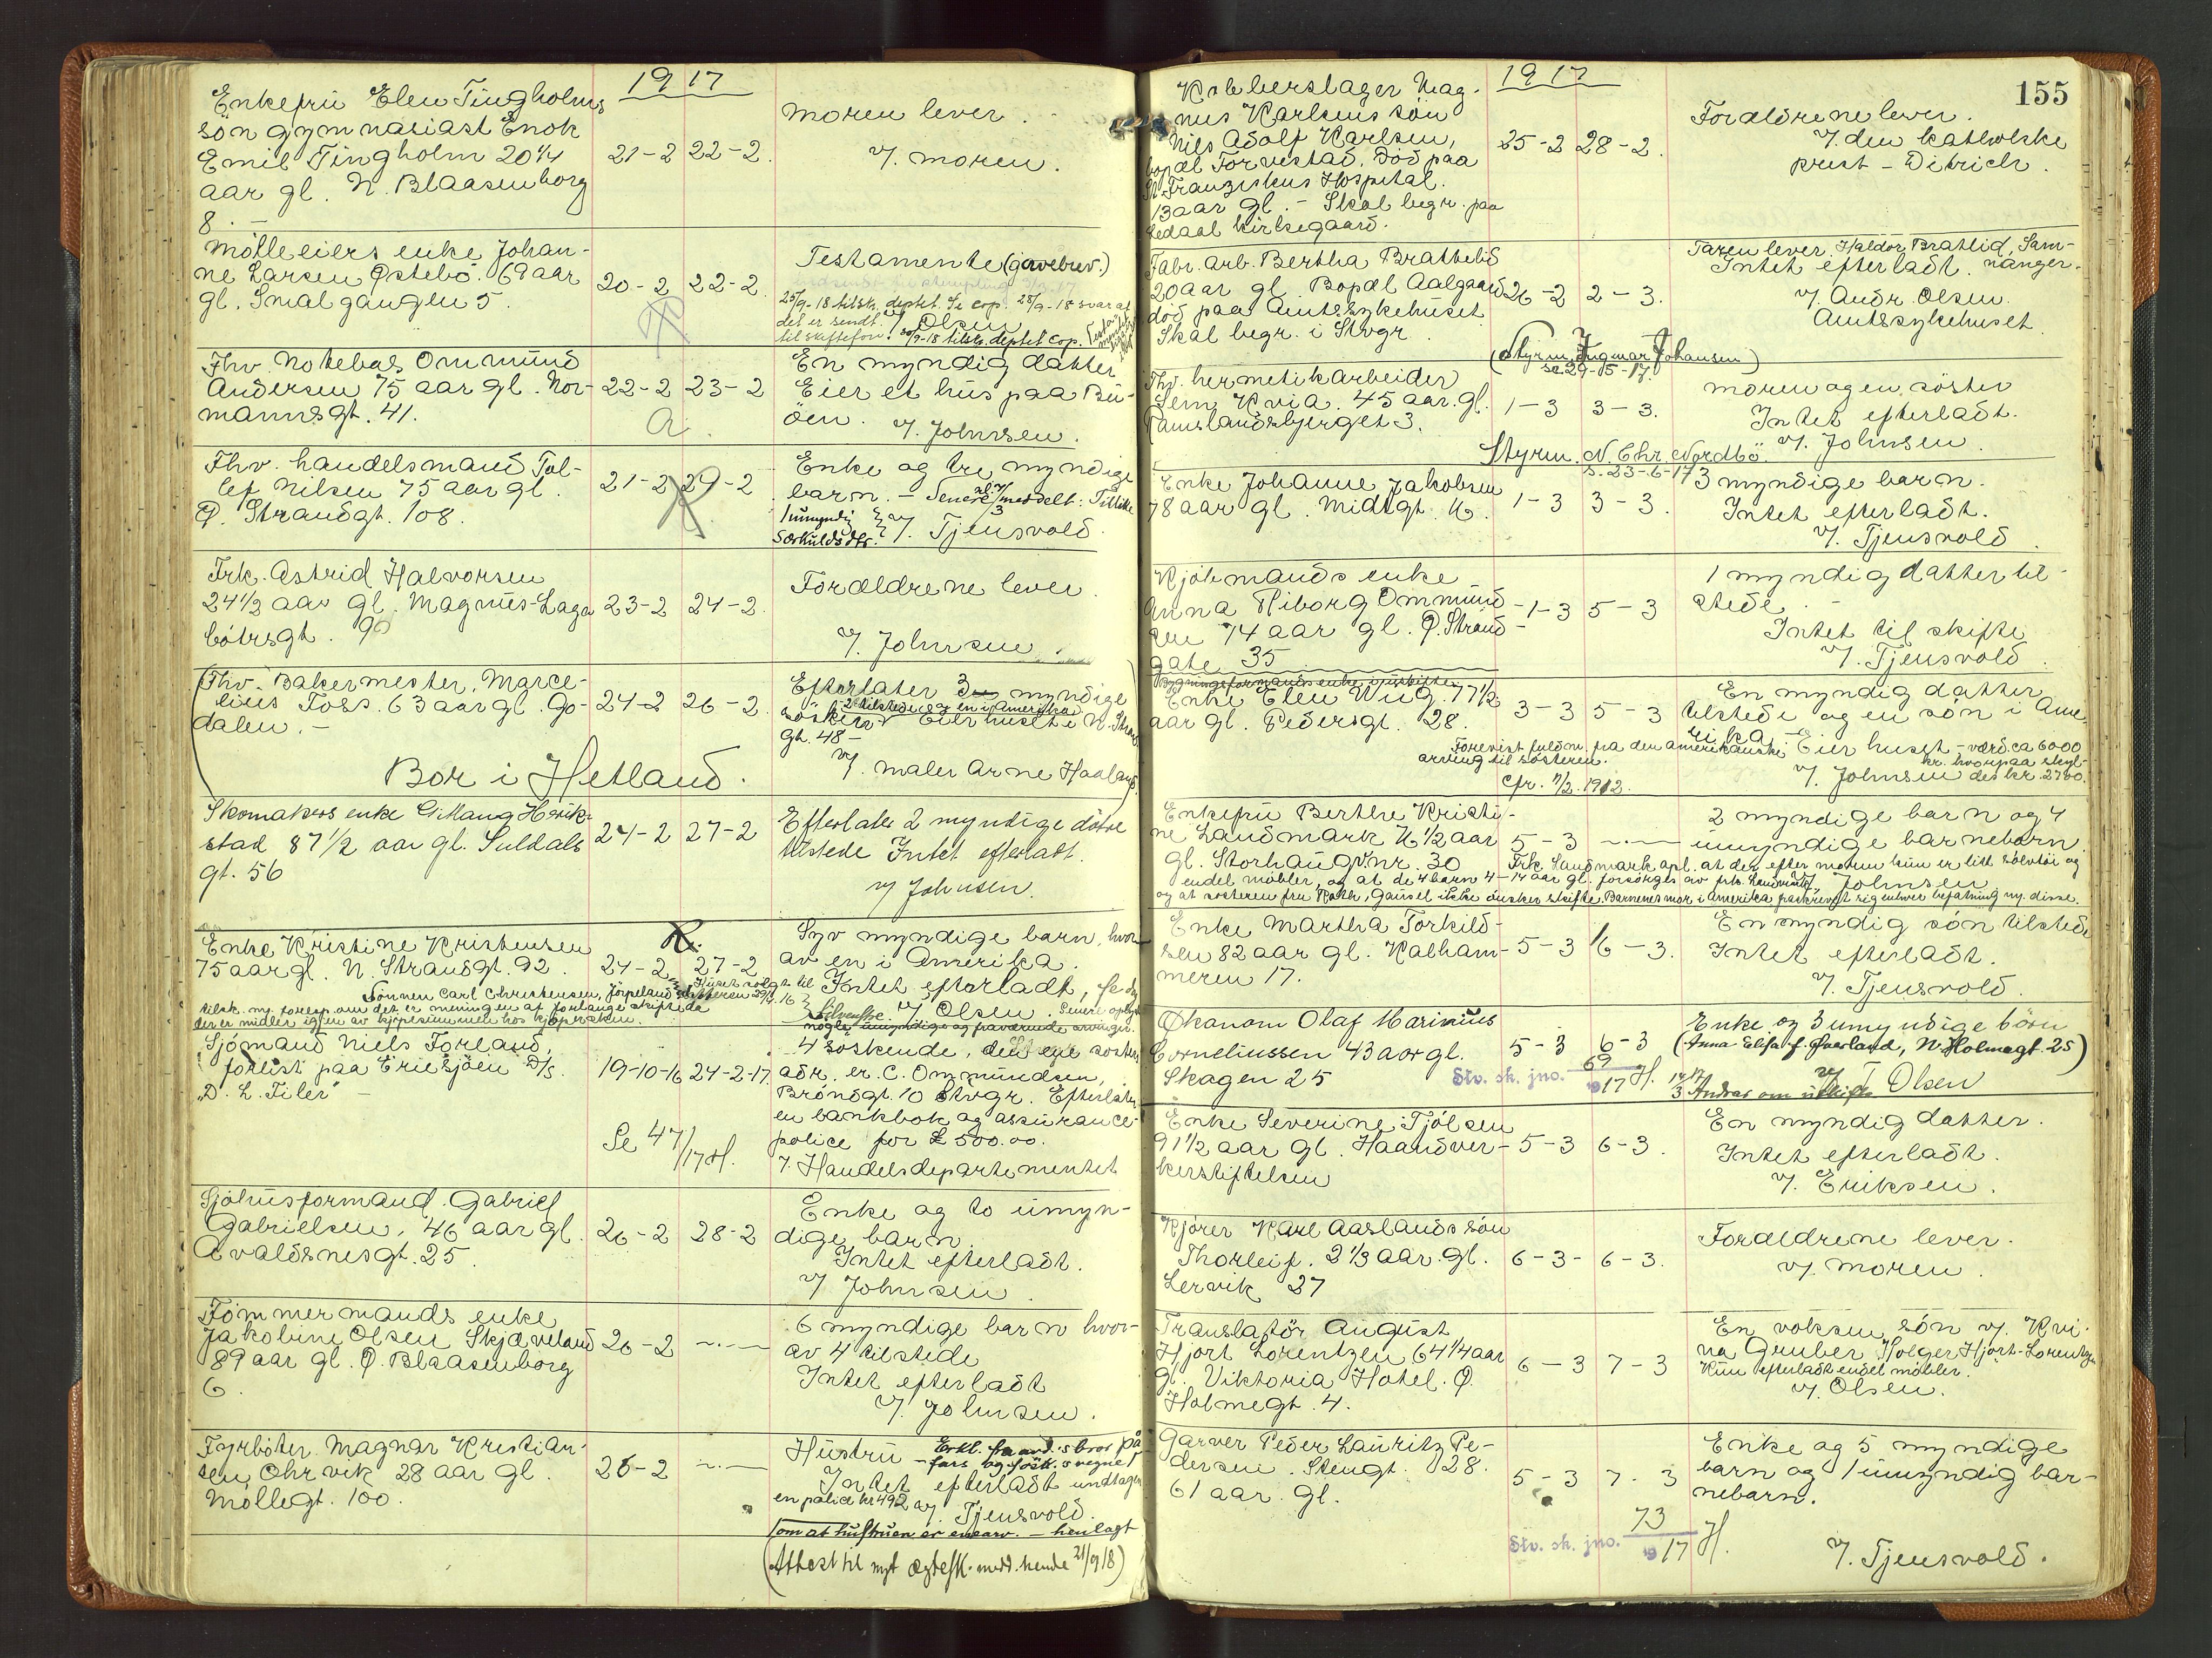 1917
Enkefru Elen Tingholms
søn gymnasiast Enok
Emil Tingholm 20 1/4
aar gl. N. Blaasenborg
8. –
21-2 22-2.
Moren lever.
v. moren.
Mølleeiers enke Johan-
ne Larsen Østebø 69 aar
gl. Smalgangen 5.
20-2 22-2.
Testamente (gavebrev.)
25/9-18 tilsk. deptet. cop. 28/9-18 svar at
det er sendt. v. Olsen
til skiftefor. 30/9-18 tilsk. deptet cop.
Fhv. Notebas Ommund
Andersen 75 aar gl. Nor-
mannsgt. 41.
22-2 23-2
a.
En myndig datter
Eier et hus paa Bu-
øen. v. Johnsen.
Fhv. handelsmand Tol-
lef Nilsen 75 aar gl.
Ø. Strandgt. 108.
21-2 29-2
Enke og tre myndige
barn. – Senere meddelt: Tillike
1 umyndig
særkuldsdtr. v. Tjensvold.
Frk. Astrid Halvorsen
24 1/2 aar gl. Magnus Laga
bøtersgt. 90
23-2 24-2.
Forældrene lever.
v. Johnsen.
Fhv. Bakermester. Marce-
lius Foss. 63 aar gl. Go-
dalen. –
24-2 26-2.
Efterlater 3 myndige
2 tilstede og en i Amerika
søsken Eier huset i N. Strand
gt. 48 –
v. maler Arne Haaland.
Bor i Hetland.
Skomakers enke Gitlaug Høik-
stad 87 1/2 aar gl. Suldals
gt. 56
24-2 27-2
Efterlater 2 myndige døtre
tilstede Intet efterladt.
v Johnsen.
Enke Kristine Kristensen
75 aar gl. N. Strandgt. 92.
24-2 27-2
Syv myndige barn, hvor-
av en i Amerika.
Intet efterladt,
Sønnen Carl Christensen, Jørpeland
tilsk. m. foresp. om det er meningen at forlange skifte da
der er midler igjen av kjøpesummen hos kjøperaken.
v Olsen. Senere
nogle umyndige og fraværende arvinger.
Sjømand Niels Førland,
forlist paa Eriesjøen D/s.
„D. L. Filer" –
19-10-16 24-2-17.
Se 47/17 H.
4 søskende, den ene søsters
adr. er C. Ommundsen,
Brøndgt. 10 Stvgr. Efterlater
en bankbok og assurance-
police for £ 500.00.
v. Handelsdepartementet
Sjøhusformand Gabriel
Gabrielsen, 46 aar gl.
Avaldsnesgt. 25.
26-2 28-2
Enke og to umyn-
dige barn
Intet efterladt.
v Johnsen.
Tømmermands enke
Jakobine Olsen Skjæveland
89 aar gl. Ø. Blaasenborg
6.
26-2 –·–
6 myndige barn hvor-
av 4 tilstede
Intet efterladt
v. Johnsen.
Fyrbøter Magnar Kristian-
sen Ohrvik 28 aar gl.
Møllegt. 100.
26-2 –·–
Hustru – Erkl. fra avd.s bror på
fars og søsk.s vegne
Intet efterladt undtagen
en police kr 492 v. Tjensvold.
om at hustruen er enearv. – henlagt
(Attest til nyt ægtesk. medd. hende 21/9 18)
155
1917
Kobberslager Mag-
nus Karlsens søn
Nils Adolf Karlsen,
bopæl Torvestad. Død paa
St. Franziskus Hospital.
13 aar gl. – Skal begr. paa
Ledaal kirkegaard.
25-2 28-2.
Forældrene lever.
v. den katholske
prest – Ditrich.
Fabr. arb. Bertha Brattelid
20 aar gl. Bopæl Aalgaard
død paa Amtssykehuset
Skal begr. i Stvgr.
26-2 2-3.
Faren lever. Haldor Bratlid, Sam-
Intet efterladt. nanger.
v. Andr. Olsen.
Amtssykehuset.
(Styrm. Ingmar Johansen)
se 29-5-17.
Fhv. hermetikarbeider
Sem Kvia. 45 aar. gl.
Ramslandsbjerget 3.
1-3 3-3.
Moren og en søster
Intet efterladt.
v. Johnsen.
Styrm. N. Chr. Nordbø.
s. 23-6-17
Enke Johanne Jakobsen
78 aar gl. Midtgt. 16.
1-3 3-3.
3 myndige barn.
Intet efterladt.
v. Tjensvold.
Kjøbmands enke
Anna Thiborg Ommund-
sen 74 aar gl. Ø. Strand-
gate 35
1-3 5-3
1 myndig datter til-
stede. –
Intet til skifte
v. Tjensvold.
Bygningsformands enke
Enke Elen Wiig. 77 1/2
aar gl. Pedersgt. 28.
3-3 5-3
En myndig datter
tilstede og en søn i Ame-
rika – Eier huset – værd. ca 6000
Forevist fuldm. fra den amerikanske
kr. hvorpaa skyl-
arving til søsteren.
v. Johnsen des kr. 2700.
Cfr. 7/2. 1912.
Enkefru Berthe Kristi-
ne Landmark 76 1/2 aar
gl. Storhaugv. nr. 30
5-3 –·–
2 myndige barn og 4
umyndige barnebarn.
Frk. Landmark opl. at der efter moren kun er litt sølvtøi og
endel møbler, og at de 4 barn 4-14 aar gl. forsørges av frk. Landmark, v. Johnsen
og at søsteren fru Kath. Gausel ikke ønsker skifte. Barnenes mor i Amerika har frasagt sig enhver befatning m. disse.
Enke Martha Torkild-
sen 82 aar gl. Kalham-
meren 17.
5-3 6-3.
En myndig søn tilstede
Intet efterladt.
v. Tjensvold.
Økonom Olaf Marinius
Corneliussen 43 aar gl.
Skagen 25
5-3 6-3
Stv. sk. jno. 69/1917 H.
Enke og 3 umyndige børn
(Anna Elisa f. Øverland, N. Holmegt. 25)
v T Olsen
Andrar om uskifte
Enke Severine Tjølsen
91 1/2 aar gl. Haandver-
kerstiftelsen
5-3 6-3.
En myndig datter.
Intet efterladt.
v. Eriksen.
Kjører Karl Aaslands søn
Thorleif. 2 1/3 aar. gl.
Lervik 27
6-3- 6-3.
Forældrene lever.
v. moren.
Translatør August
Hjort Lorentzen 64 1/4 aar
gl. Viktoria Hotel. Ø.
Holmegt. 4.
6-3 7-3
En voksen søn v. Kvi-
na Gruber Holger Hjort-Lorentzen
Kun efterladt endel møbler.
v. Olsen.
Garver Peder Lauritz Pe-
dersen. Stengt. 28.
61 aar. gl.
5-3 7-3
Enke og 5 myndige
barn og 1 umyndig bar-
nebarn.
Stv. sk. jno. 73/1917 H.
v. Tjensvold.